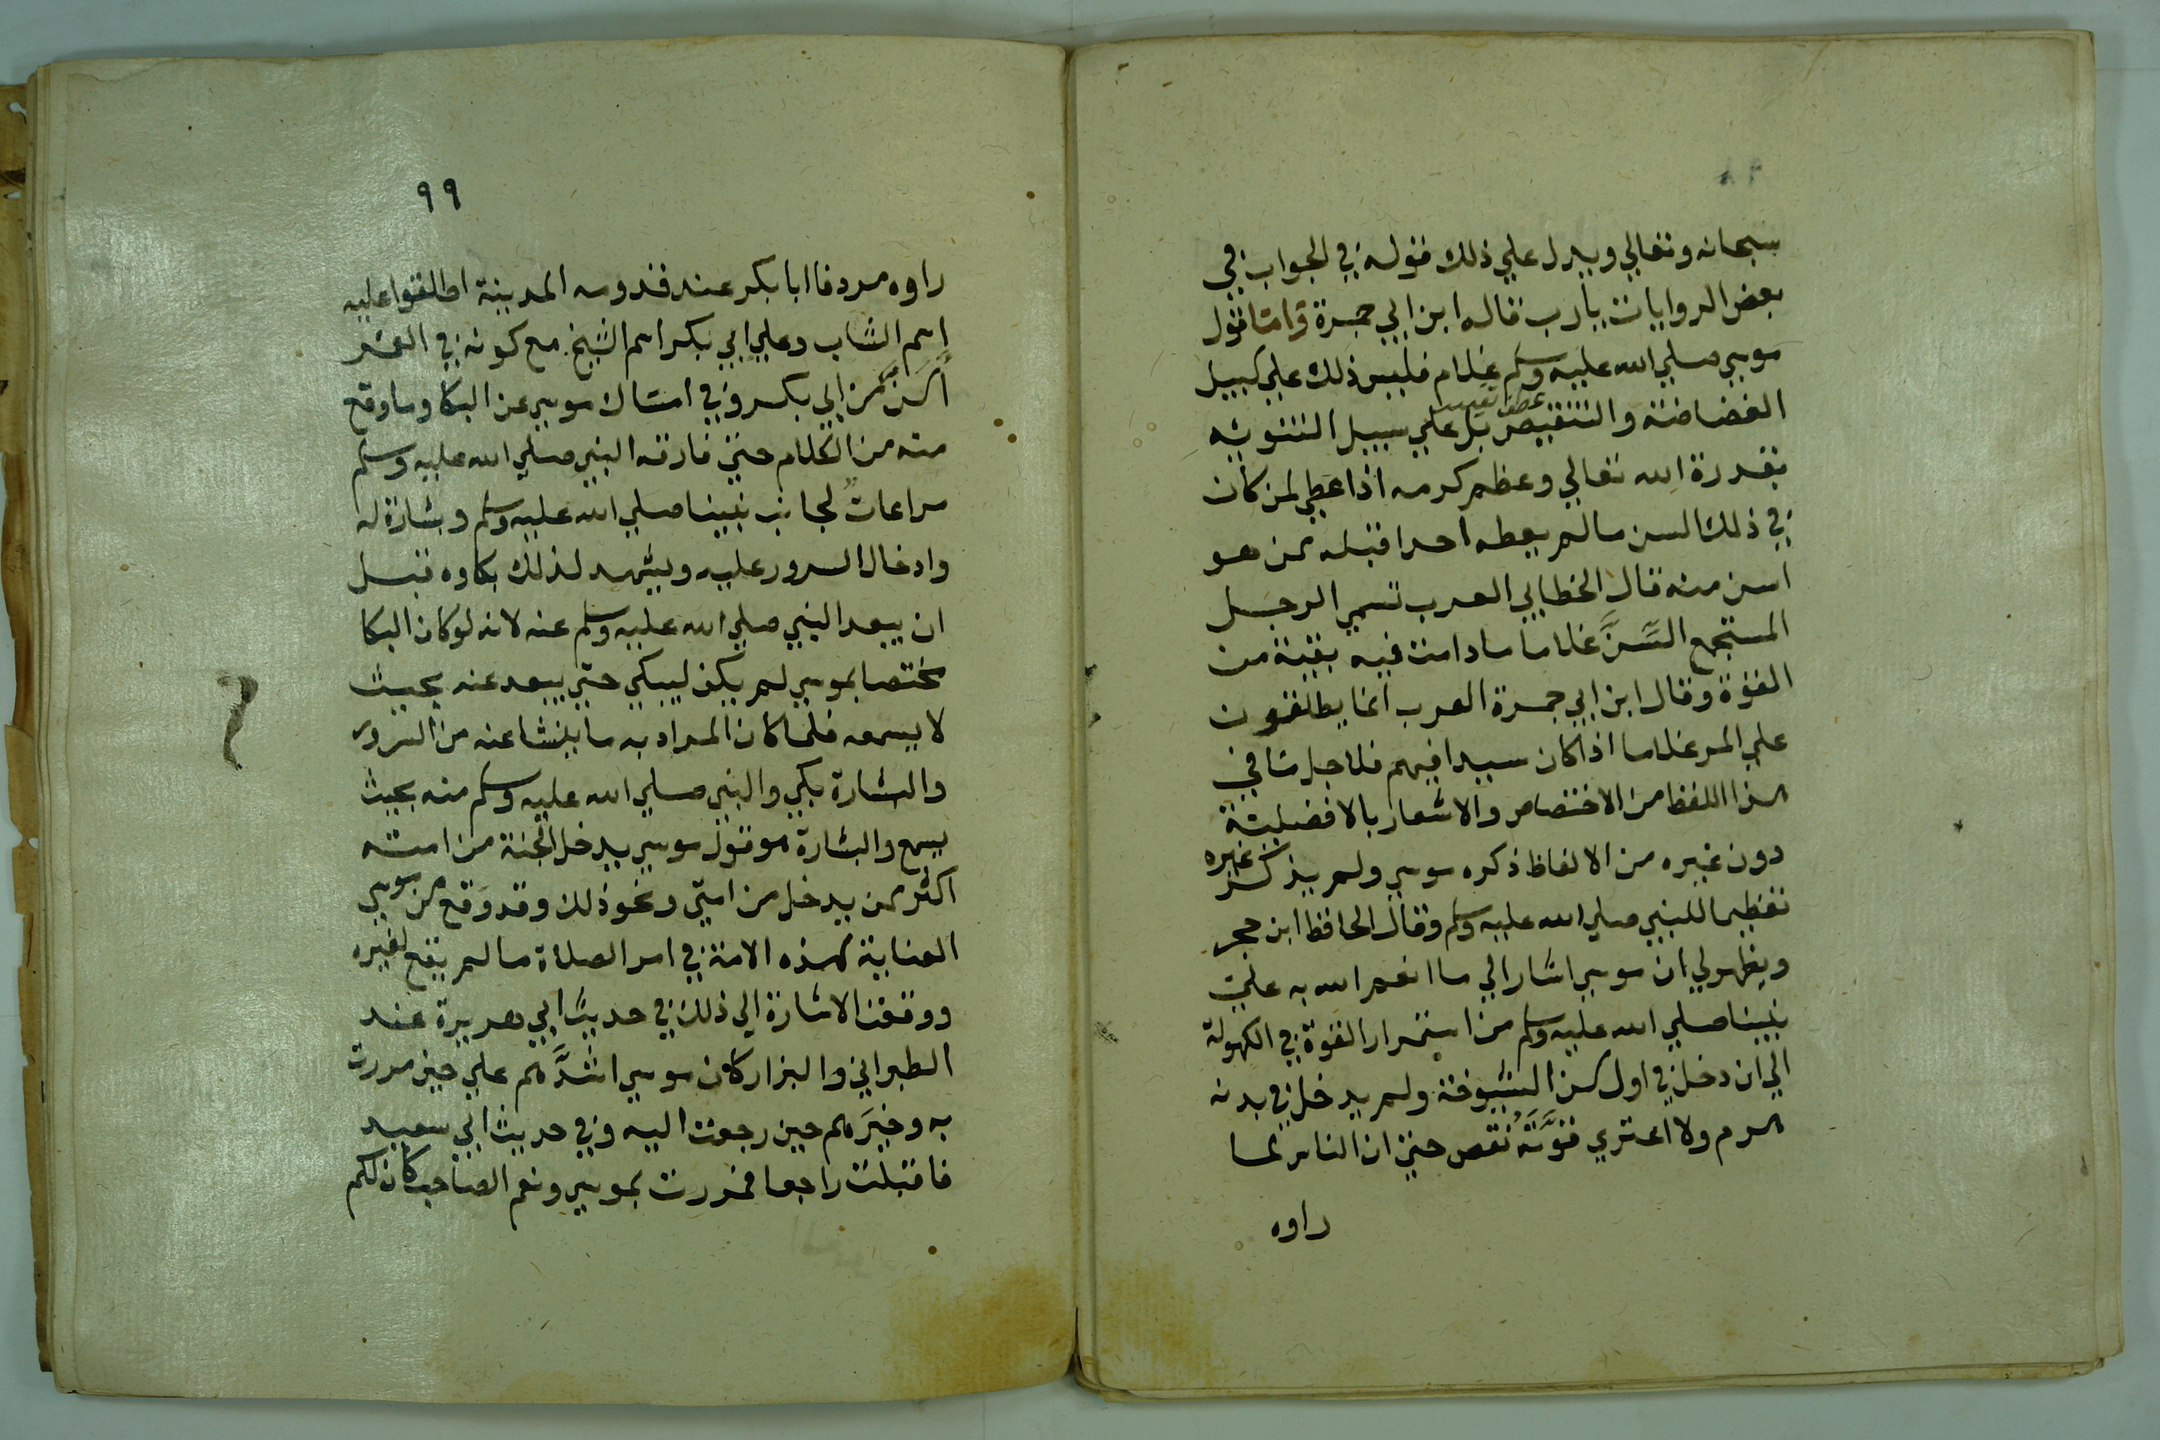 ٩٨
سبحانه وتعالي ويدل علي ذلك قوله في الجواب في
بعض الروايات يارب قاله ابن ابي جمرة وامّا قول
موسي صلي الله عليه وسلم غلام فليس ذلك علي سبيل
الغضاضة والتنقيص بل علي سبيل التنويه
عطف تفسير
بقدرة الله تعالي وعظم كرمه اذ اعطي لمن كان
في ذلك السن مالم يعطه احدا قبله ممن هو
اسن منه قال الخطابي العرب تسمي الرجل
المستجمع السِّنَّ غلاما مادامت فيه بقية من
القوة وقال ابن ابي جمرة العرب انما يطلقون
علي المر غلاما اذا كان سيدا فيهم فلاجل ما في
هذا اللفظ من الاختصاص والاشعار بالافضلية
دون غيره من الالفاظ ذكره موسي ولم يذكر غيره
تعظيما للنبي صلي الله عليه وسلم وقال الحافظ ابن حجر
ويظهر لي ان موسي اشار الي ما انعم الله به علي
نبينا صلي الله عليه وسلم من استمرار القوة في الكهولة
الي ان دخل في اول سن الشيوخة ولم يدخل في بدنه
هرم ولا اعتري قوَّتَهُ نقص حتي ان الناس لما
راوه
٩٩
راوه مردفا ابا بكر عند قدومه المدينة اطلقوا عليه
اسم الشاب وعلي ابي بكر اسم الشيخ مع كونه في العمر
اَسَنَّ من ابي بكر وفي امساك موسي عن البكا وما وقع
منه من الكلام حتي فارقه النبي صلي الله عليه وسلم
مراعاتٌ لجانب نبينا صلي الله عليه وسلم وبشارة له
وادخال السرور عليه ويشهد لذلك بكاوه قبل
ان يبعد النبي صلي الله عليه وسلم عنه لانه لو كان البكا
مختصا بموسي لم يكن ليبكي حتي يبعد عنه بحيث
لا يسمعه فلما كان المراد به ما ينشا عنه من السرور
والبشارة بكي والنبي صلي الله عليه وسلم منه بحيث
يسمع والبشارة هو قول موسي يدخل الجنة من امته
اكثر ممن يدخل من امتي ونحو ذلك وقد وقع من موسي
العناية بهذه الامة في امر الصلاة مالم يقع لغيره
ووقعت الاشارة الي ذلك في حديث ابي هريرة عند
الطبراني والبزار كان موسي اشدَّهم علي حين مررت
به وخيرَهم حين رجعت اليه وفي حديث ابي سعيد
فاقبلت راجعا فمررت بموسي ونعم الصاحب كان لكم